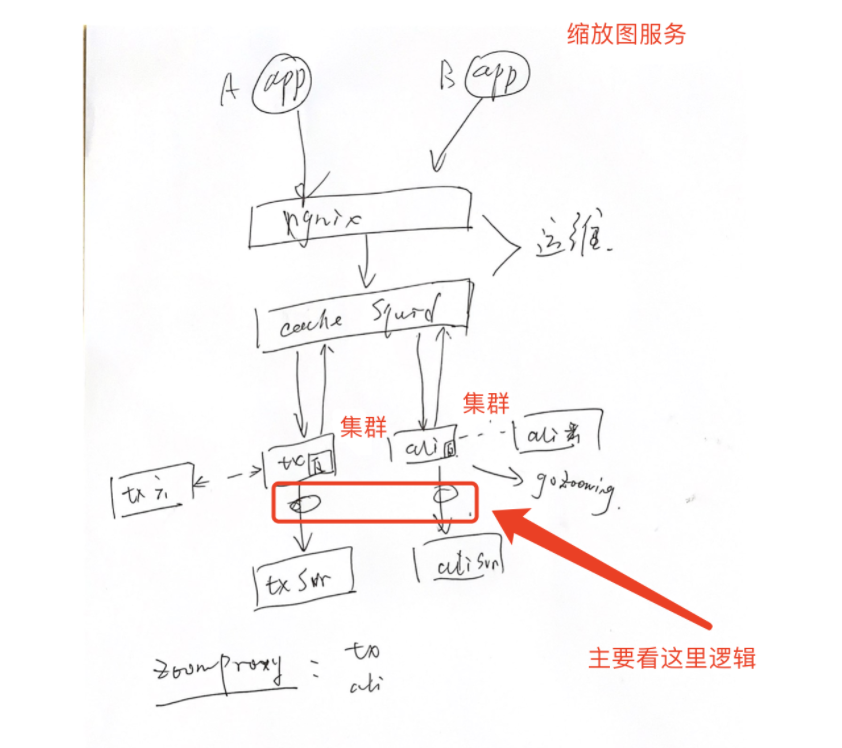 缩放图服务
A app
B app
ngnix
运维.
cache Squid
集群
集群
tx
ali
ali云
tx云
gozooming.
tx Svr
ali Svr
主要看这里逻辑
zoomproxy : tx
ali